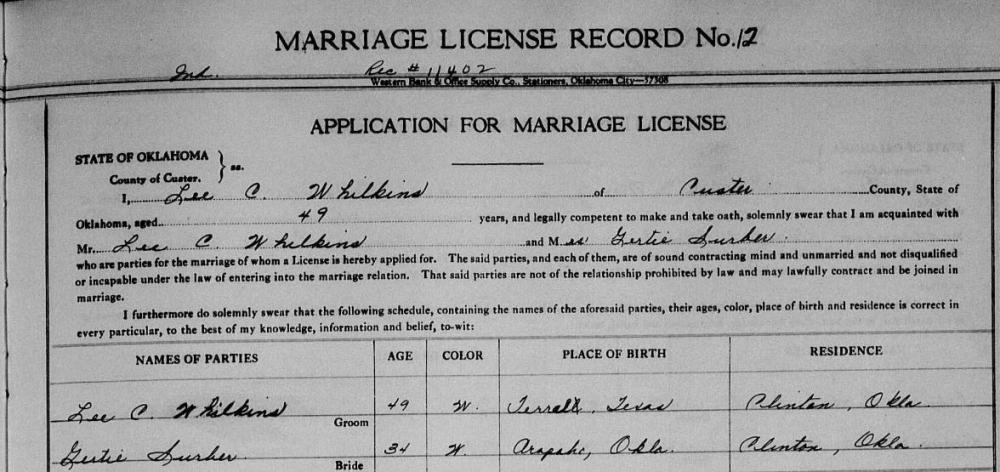 MARRIAGE LICENSE RECORD No. 12
Ind. Rec # 11402
Western Bank & Office Supply Co., Stationers, Oklahoma City—37308
APPLICATION FOR MARRIAGE LICENSE
STATE OF OKLAHOMA } ss.
County of Custer.
I, Lee C. Whilkins of Custer County, State of
Oklahoma, aged 49 years, and legally competent to make and take oath, solemnly swear that I am acquainted with
Mr. Lee C. Whilkins and M es Gertie Surber
who are parties for the marriage of whom a License is hereby applied for. The said parties, and each of them, are of sound contracting mind and unmarried and not disqualified
or incapable under the law of entering into the marriage relation. That said parties are not of the relationship prohibited by law and may lawfully contract and be joined in
marriage.
I furthermore do solemnly swear that the following schedule, containing the names of the aforesaid parties, their ages, color, place of birth and residence is correct in
every particular, to the best of my knowledge, information and belief, to-wit:
NAMES OF PARTIES AGE COLOR PLACE OF BIRTH RESIDENCE
Lee C. Whilkins Groom 49 W. Terrall, Texas Clinton, Okla.
Gertie Surber Bride 34 W. Arapaho, Okla. Clinton, Okla.